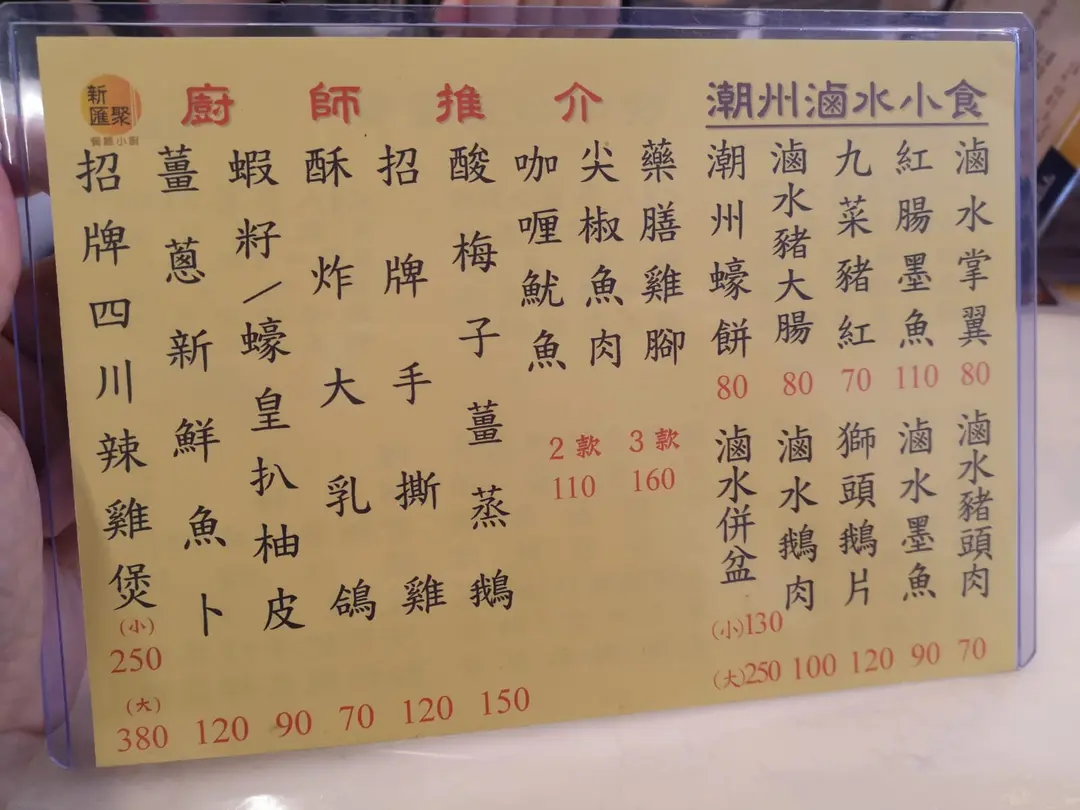 新
匯聚
小廚
廚師推介
招牌四川辣雞煲
(小)
250
(大)
380
薑蔥新鮮魚卜
120
蝦籽/蠔皇扒柚皮
90
酥炸大乳鴿
70
招牌手撕雞
120
酸梅子薑蒸鵝
150
咖喱魷魚
尖椒魚肉
藥膳雞腳
2款
110
3款
160
潮州滷水小食
潮州蠔餅
80
滷水豬大腸
80
九菜豬紅
70
紅腸墨魚
110
滷水掌翼
80
滷水併盆
(小)130
(大)250
滷水鵝肉
100
獅頭鵝片
120
滷水墨魚
90
滷水豬頭肉
70